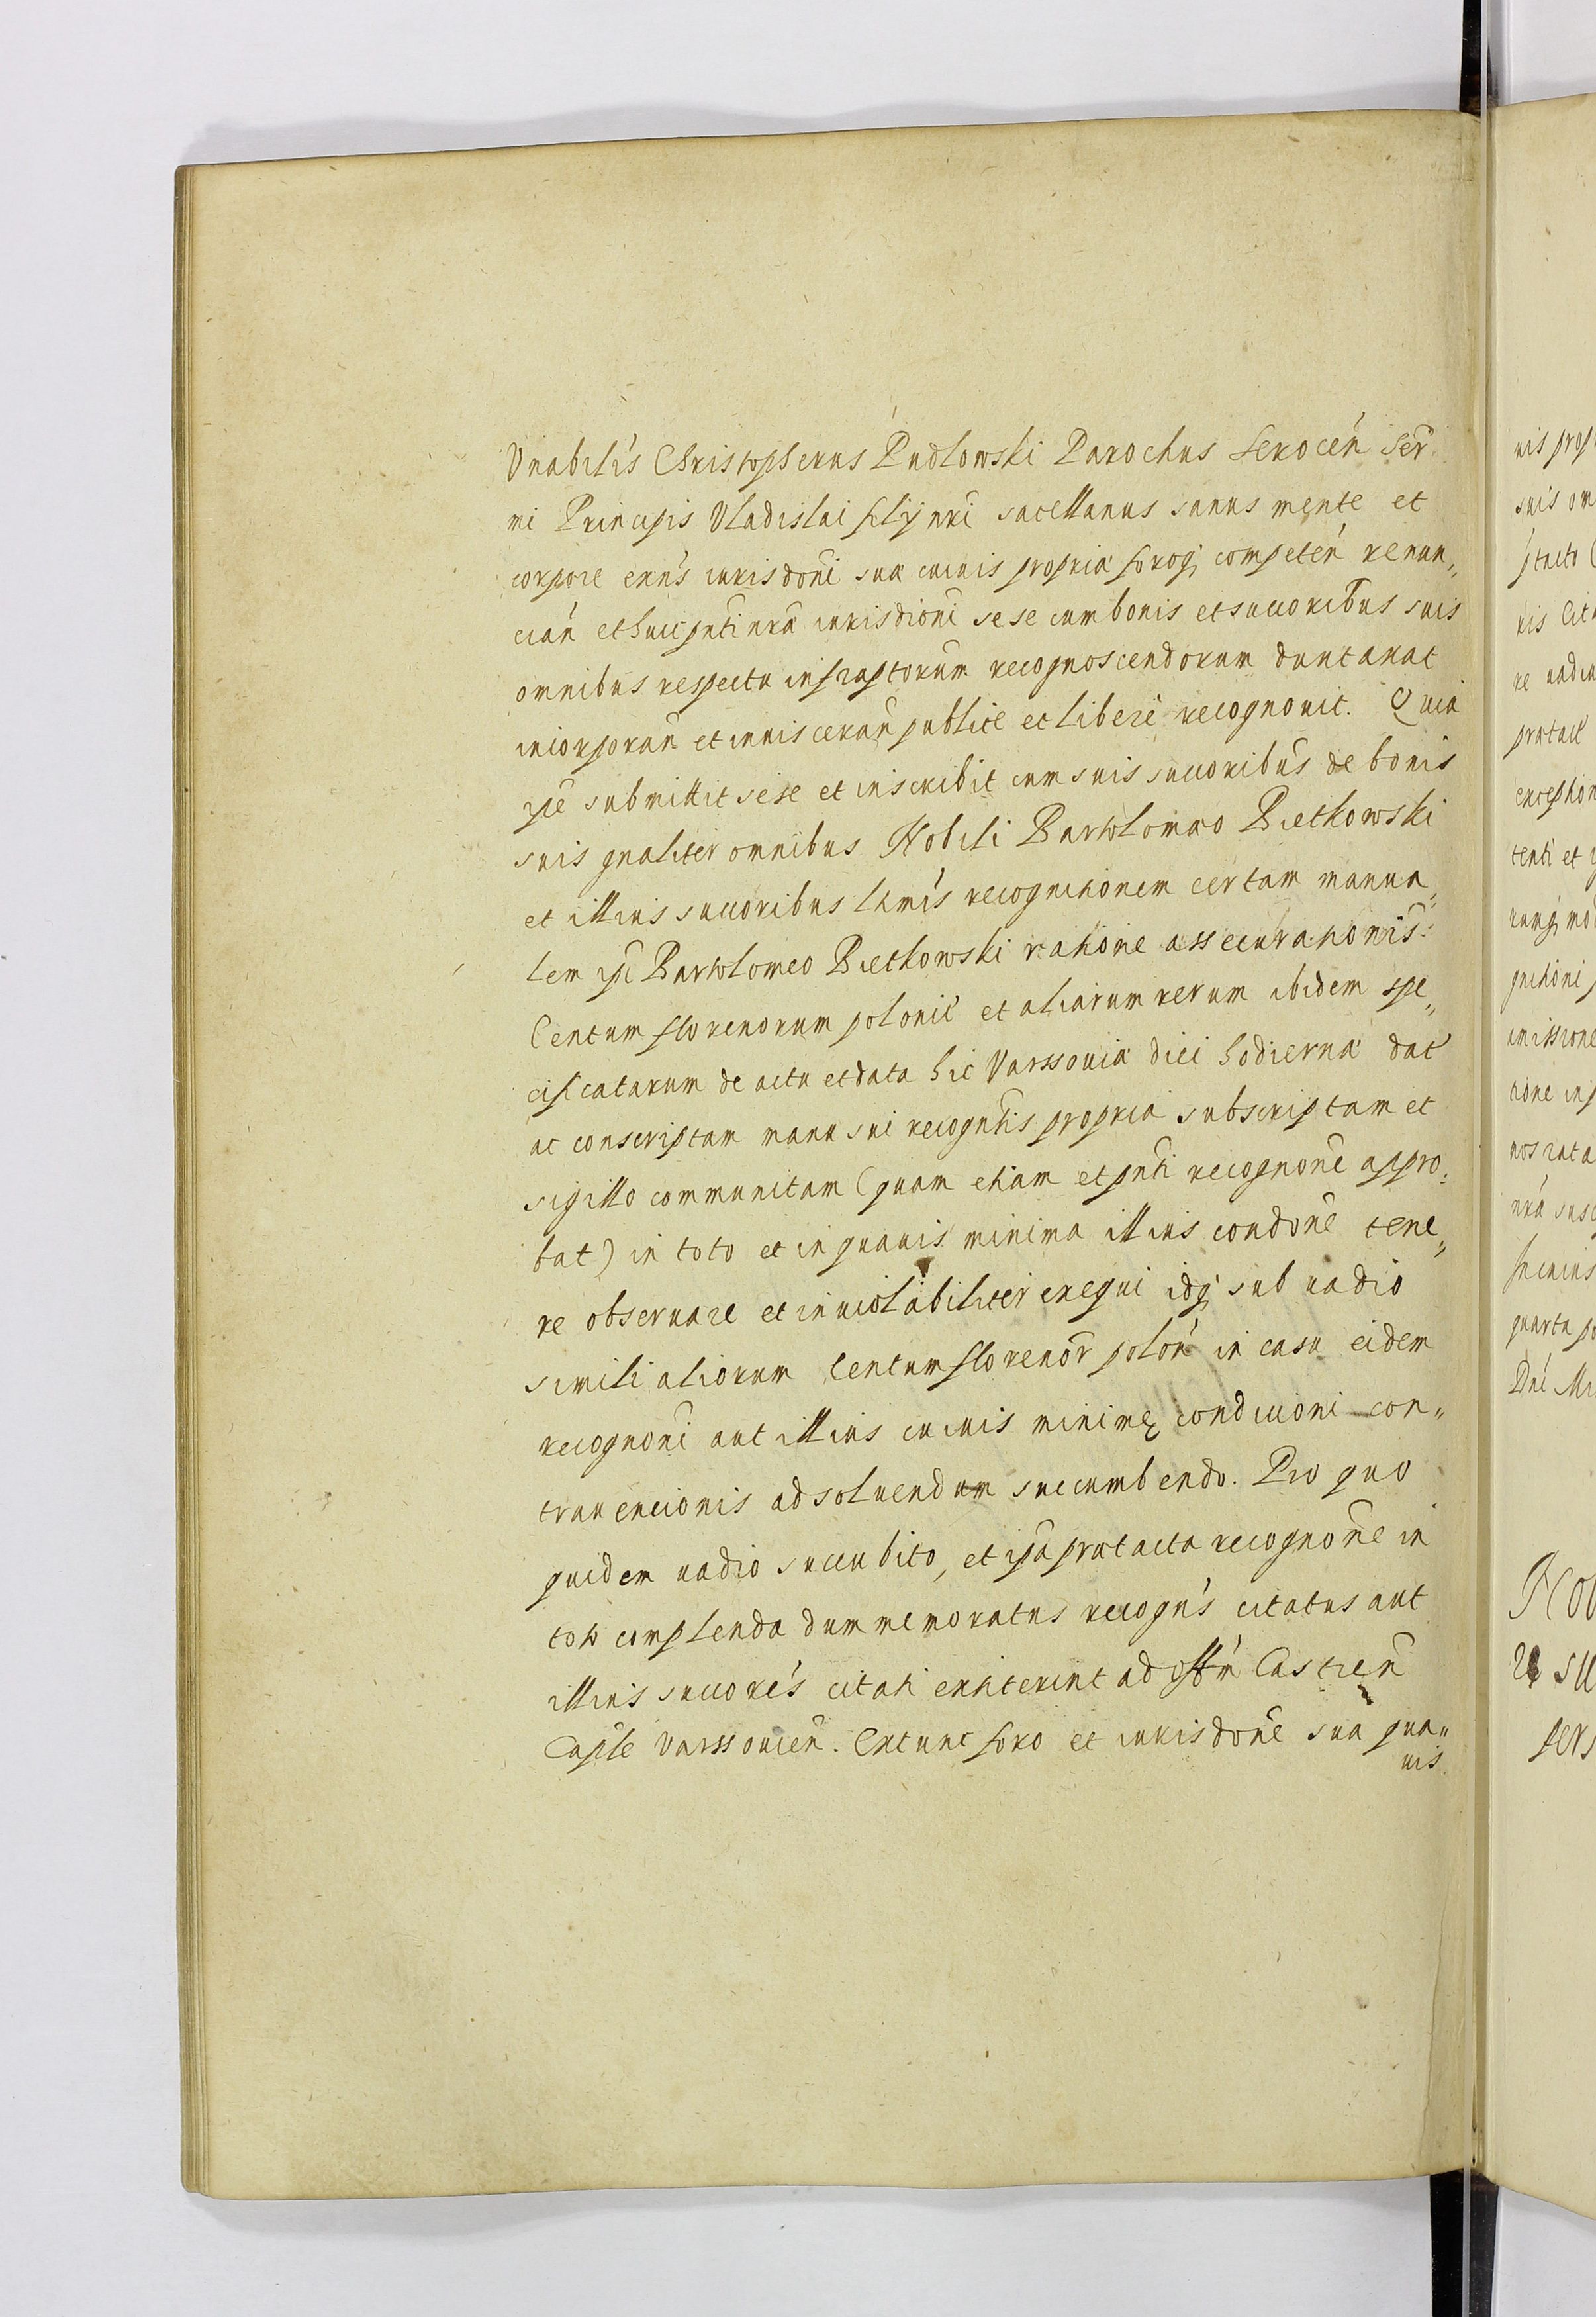 Vnabilis Christopherus Pudlowski Parochus Serocen̄ Ser
mi Principis Vladislai filij nr̄i sacellanus sanus mente et
corpore exn̄s iurisdōni sua cuiuis propria foroq; competen̄ renun„
cian̄ et huic pn̄ti nr̄a iurisdioni sese cum bonis et succoribus suis
omnibus respectu infraptorum recognoscendorum duntaxat
incorporan̄ et inuisceran̄ publice et libere recognouit. Quia
ipe submittit sese et inscribit cum suis succoribus de bonis
suis gnaliter omnibus Nobili Bartolomæo Pietkowski
et illius succoribus lhmis recognitionem certam manua„
lem ipi Bartolomeo Pietkowski ratione assecurationis
Centum florenorum polonic et aliarum rerum ibidem spe„
cificatarum de actu et data hic Varssouia diei hodierna dat
ac conscriptam manu sui recogntis propria subscriptam et
sigillo communitam (quam etiam et pn̄ti recognone appro„
bat) in toto et in quauis minima illius condōne tene„
re obseruare et inuiolabiliter exequi idq; sub vadio
simili aliorum Centum florenor̄ polon̄ in casu eidem
recognoni aut illius cuiuis minimę condicioni con„
trauencionis ad soluendum succumbendo. Pro quo
quidem vadio succubito, et ipa prætacta recognone in
toto complenda dum memoratus recogn̄s citatus aut
illius succores citati extiterint ad offn̄ Castren̄
Caple Varssouien̄. Extunc foro et iurisdōne sua qua„
uis